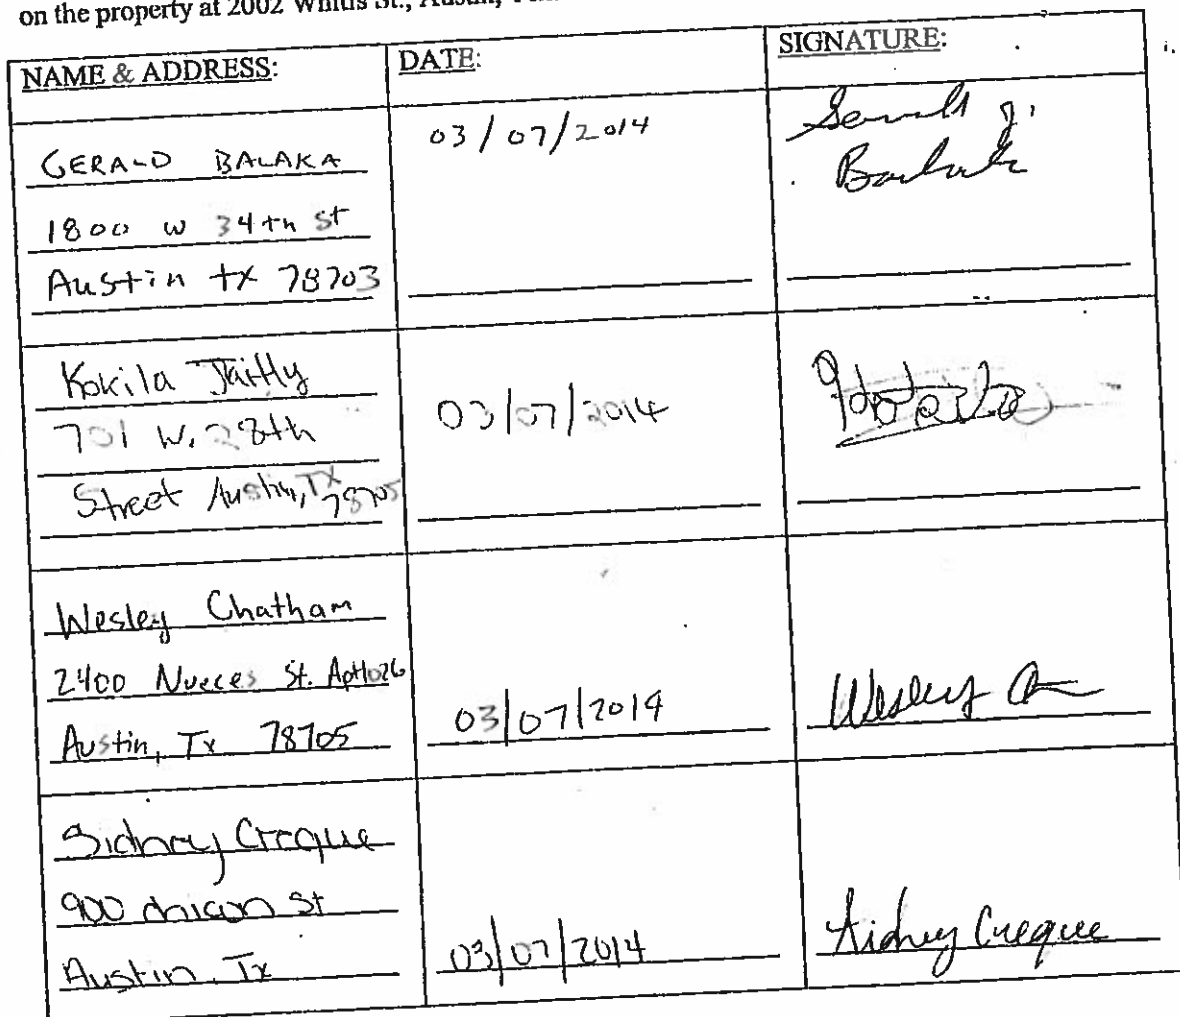 on the property at 2002 Whitis St., Austin,
NAME & ADDRESS:
DATE:
SIGNATURE:
GERALD BALAKA
1800 W 34th St
Austin tx 78703
03/07/2014
Kokila Jaitly
701 W. 28th
Street Austin, TX
78705
03/07/2014
Wesley Chatham
2400 Nueces St. Apt 1026
Austin, Tx 78705
03/07/2014
Wesley
Sidney Creque
900 St
Austin, Tx
03/07/2014
Sidney Creque